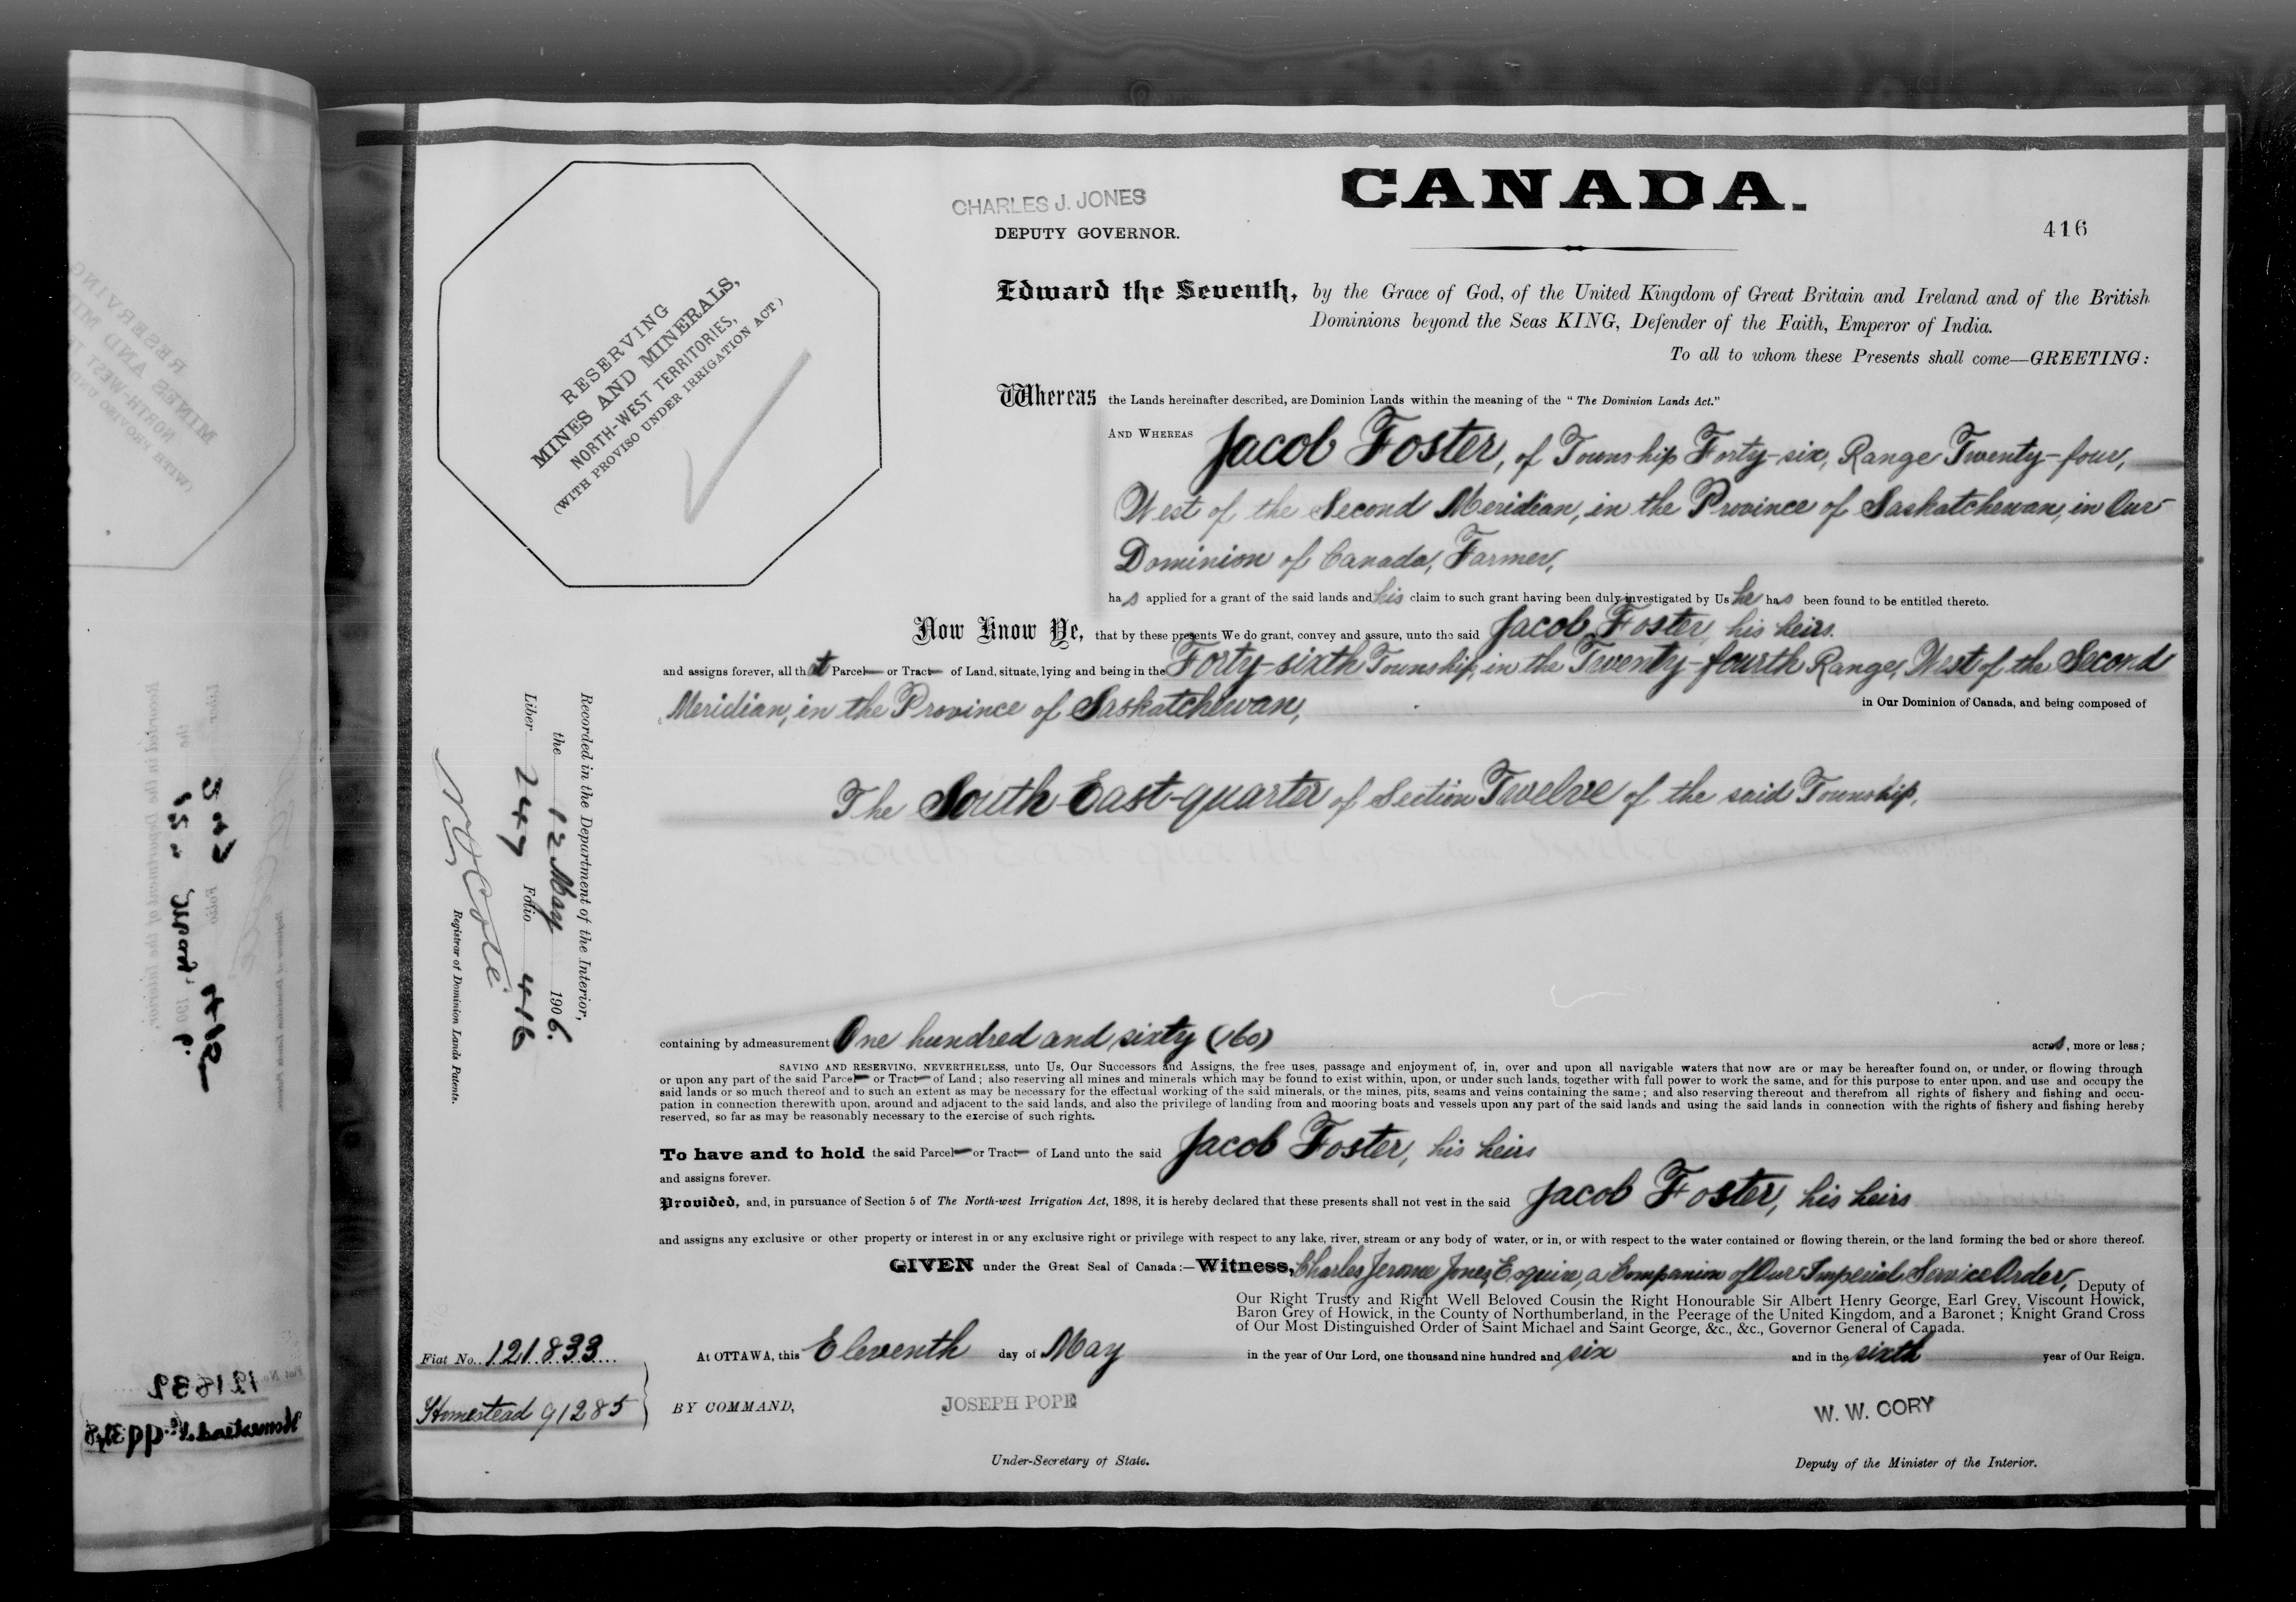 CANADA.
CHARLES J. JONES
DEPUTY GOVERNOR.
416
RESERVING
MINES AND MINERALS,
NORTH-WEST TERRITORIES,
(WITH PROVISO UNDER IRRIGATION ACT)
Edward the Seventh, by the Grace of God, of the United Kingdom of Great Britain and Ireland and of the British
Dominions beyond the Seas KING, Defender of the Faith, Emperor of India.
To all to whom these Presents shall come—GREETING:
Whereas the Lands hereinafter described, are Dominion Lands within the meaning of the "The Dominion Lands Act."
AND WHEREAS Jacob Foster, of Township Forty-six, Range Twenty-four,
West of the Second Meridian, in the Province of Saskatchewan, in Our
Dominion of Canada, Farmer,
has applied for a grant of the said lands and his claim to such grant having been duly investigated by Us he has been found to be entitled thereto.
Now Know Ye, that by these presents We do grant, convey and assure, unto the said Jacob Foster, his heirs
and assigns forever, all that Parcel or Tract of Land, situate, lying and being in the Forty-sixth Township, in the Twenty-fourth Range, West of the Second
Meridian, in the Province of Saskatchewan, in Our Dominion of Canada, and being composed of
The South-East-quarter of Section Twelve of the said Township,
containing by admeasurement One hundred and sixty (160) acres, more or less;
SAVING AND RESERVING, NEVERTHELESS, unto Us, Our Successors and Assigns, the free uses, passage and enjoyment of, in, over and upon all navigable waters that now are or may be hereafter found on, or under, or flowing through
or upon any part of the said Parcel or Tract of Land; also reserving all mines and minerals which may be found to exist within, upon, or under such lands, together with full power to work the same, and for this purpose to enter upon, and use and occupy the
said lands or so much thereof and to such an extent as may be necessary for the effectual working of the said minerals, or the mines, pits, seams and veins containing the same; and also reserving thereout and therefrom all rights of fishery and fishing and occu-
pation in connection therewith upon, around and adjacent to the said lands, and also the privilege of landing from and mooring boats and vessels upon any part of the said lands and using the said lands in connection with the rights of fishery and fishing hereby
reserved, so far as may be reasonably necessary to the exercise of such rights.
To have and to hold the said Parcel or Tract of Land unto the said Jacob Foster, his heirs
and assigns forever.
Provided, and, in pursuance of Section 5 of The North-west Irrigation Act, 1898, it is hereby declared that these presents shall not vest in the said Jacob Foster, his heirs
and assigns any exclusive or other property or interest in or any exclusive right or privilege with respect to any lake, river, stream or any body of water, or in, or with respect to the water contained or flowing therein, or the land forming the bed or shore thereof.
GIVEN under the Great Seal of Canada:—Witness, Charles Jerome Jones, Esquire, a Companion of Our Imperial Service Order, Deputy of
Our Right Trusty and Right Well Beloved Cousin the Right Honourable Sir Albert Henry George, Earl Grey, Viscount Howick,
Baron Grey of Howick, in the County of Northumberland, in the Peerage of the United Kingdom, and a Baronet; Knight Grand Cross
of Our Most Distinguished Order of Saint Michael and Saint George, &c., &c., Governor General of Canada.
At OTTAWA, this Eleventh day of May in the year of Our Lord, one thousand nine hundred and six and in the sixth year of Our Reign.
BY COMMAND,
JOSEPH POPE
Under-Secretary of State.
W. W. CORY
Deputy of the Minister of the Interior.
Fiat No. 121833
Homestead 91285
Recorded in the Department of the Interior,
the 12 May 1906.
Liber 247 Folio 416
Côté
Registrar of Dominion Lands Patents.